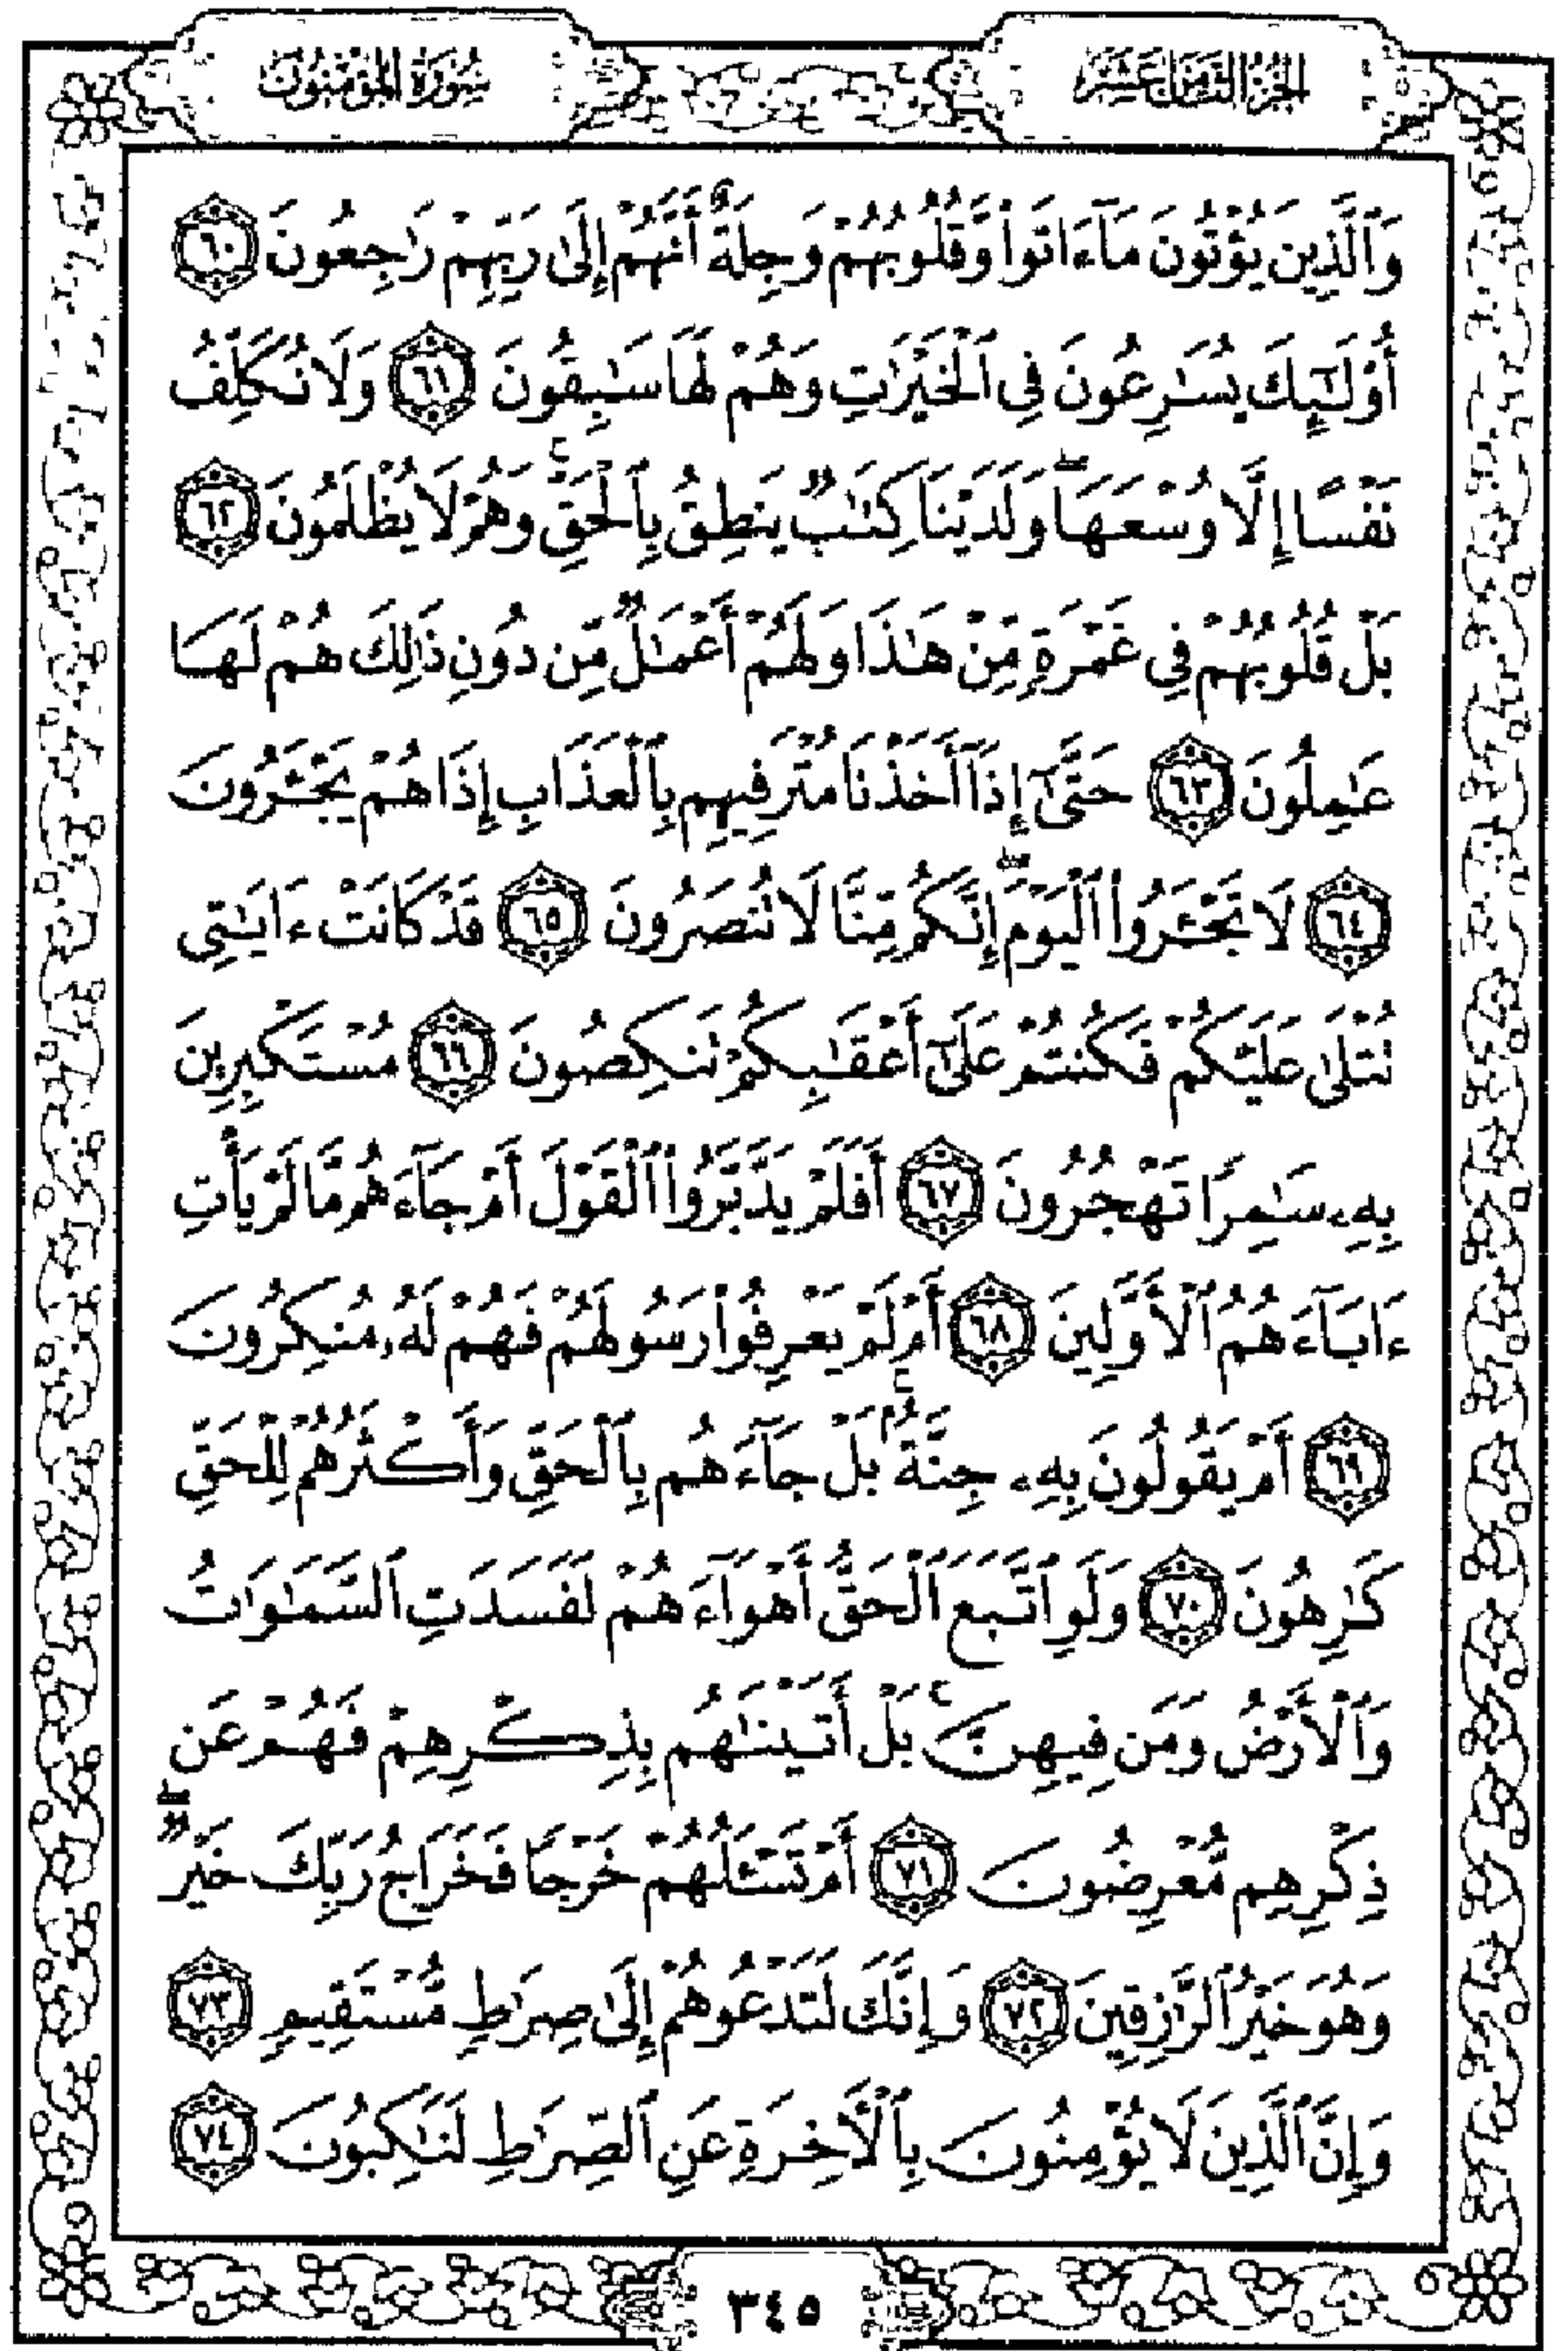 الجزء الثامن عشر
سورة المؤمنون
وَٱلَّذِينَ يُؤْتُونَ مَآ ءَاتَوا۟ وَّقُلُوبُهُمْ وَجِلَةٌ أَنَّهُمْ إِلَىٰ رَبِّهِمْ رَٰجِعُونَ ٦٠
أُو۟لَٰٓئِكَ يُسَٰرِعُونَ فِى ٱلْخَيْرَٰتِ وَهُمْ لَهَا سَٰبِقُونَ ٦١ وَلَا نُكَلِّفُ
نَفْسًا إِلَّا وُسْعَهَاۖ وَلَدَيْنَا كِتَٰبٌ يَنطِقُ بِٱلْحَقِّۚ وَهُمْ لَا يُظْلَمُونَ ٦٢
بَلْ قُلُوبُهُمْ فِى غَمْرَةٍ مِّنْ هَٰذَا وَلَهُمْ أَعْمَٰلٌ مِّن دُونِ ذَٰلِكَ هُمْ لَهَا
عَٰمِلُونَ ٦٣ حَتَّىٰٓ إِذَآ أَخَذْنَا مُتْرَفِيهِم بِٱلْعَذَابِ إِذَا هُمْ يَجْـَٔرُونَ
٦٤ لَا تَجْـَٔرُوا۟ ٱلْيَوْمَۖ إِنَّكُم مِّنَّا لَا تُنصَرُونَ ٦٥ قَدْ كَانَتْ ءَايَٰتِى
تُتْلَىٰ عَلَيْكُمْ فَكُنتُمْ عَلَىٰٓ أَعْقَٰبِكُمْ تَنكِصُونَ ٦٦ مُسْتَكْبِرِينَ
بِهِۦ سَٰمِرًا تَهْجُرُونَ ٦٧ أَفَلَمْ يَدَّبَّرُوا۟ ٱلْقَوْلَ أَمْ جَآءَهُم مَّا لَمْ يَأْتِ
ءَابَآءَهُمُ ٱلْأَوَّلِينَ ٦٨ أَمْ لَمْ يَعْرِفُوا۟ رَسُولَهُمْ فَهُمْ لَهُۥ مُنكِرُونَ
٦٩ أَمْ يَقُولُونَ بِهِۦ جِنَّةٌۢۚ بَلْ جَآءَهُم بِٱلْحَقِّ وَأَكْثَرُهُمْ لِلْحَقِّ
كَٰرِهُونَ ٧٠ وَلَوِ ٱتَّبَعَ ٱلْحَقُّ أَهْوَآءَهُمْ لَفَسَدَتِ ٱلسَّمَٰوَٰتُ
وَٱلْأَرْضُ وَمَن فِيهِنَّۚ بَلْ أَتَيْنَٰهُم بِذِكْرِهِمْ فَهُمْ عَن
ذِكْرِهِم مُّعْرِضُونَ ٧١ أَمْ تَسْـَٔلُهُمْ خَرْجًا فَخَرَاجُ رَبِّكَ خَيْرٌۖ
وَهُوَ خَيْرُ ٱلرَّٰزِقِينَ ٧٢ وَإِنَّكَ لَتَدْعُوهُمْ إِلَىٰ صِرَٰطٍ مُّسْتَقِيمٍ ٧٣
وَإِنَّ ٱلَّذِينَ لَا يُؤْمِنُونَ بِٱلْأَخِرَةِ عَنِ ٱلصِّرَٰطِ لَنَٰكِبُونَ ٧٤
٣٤٥